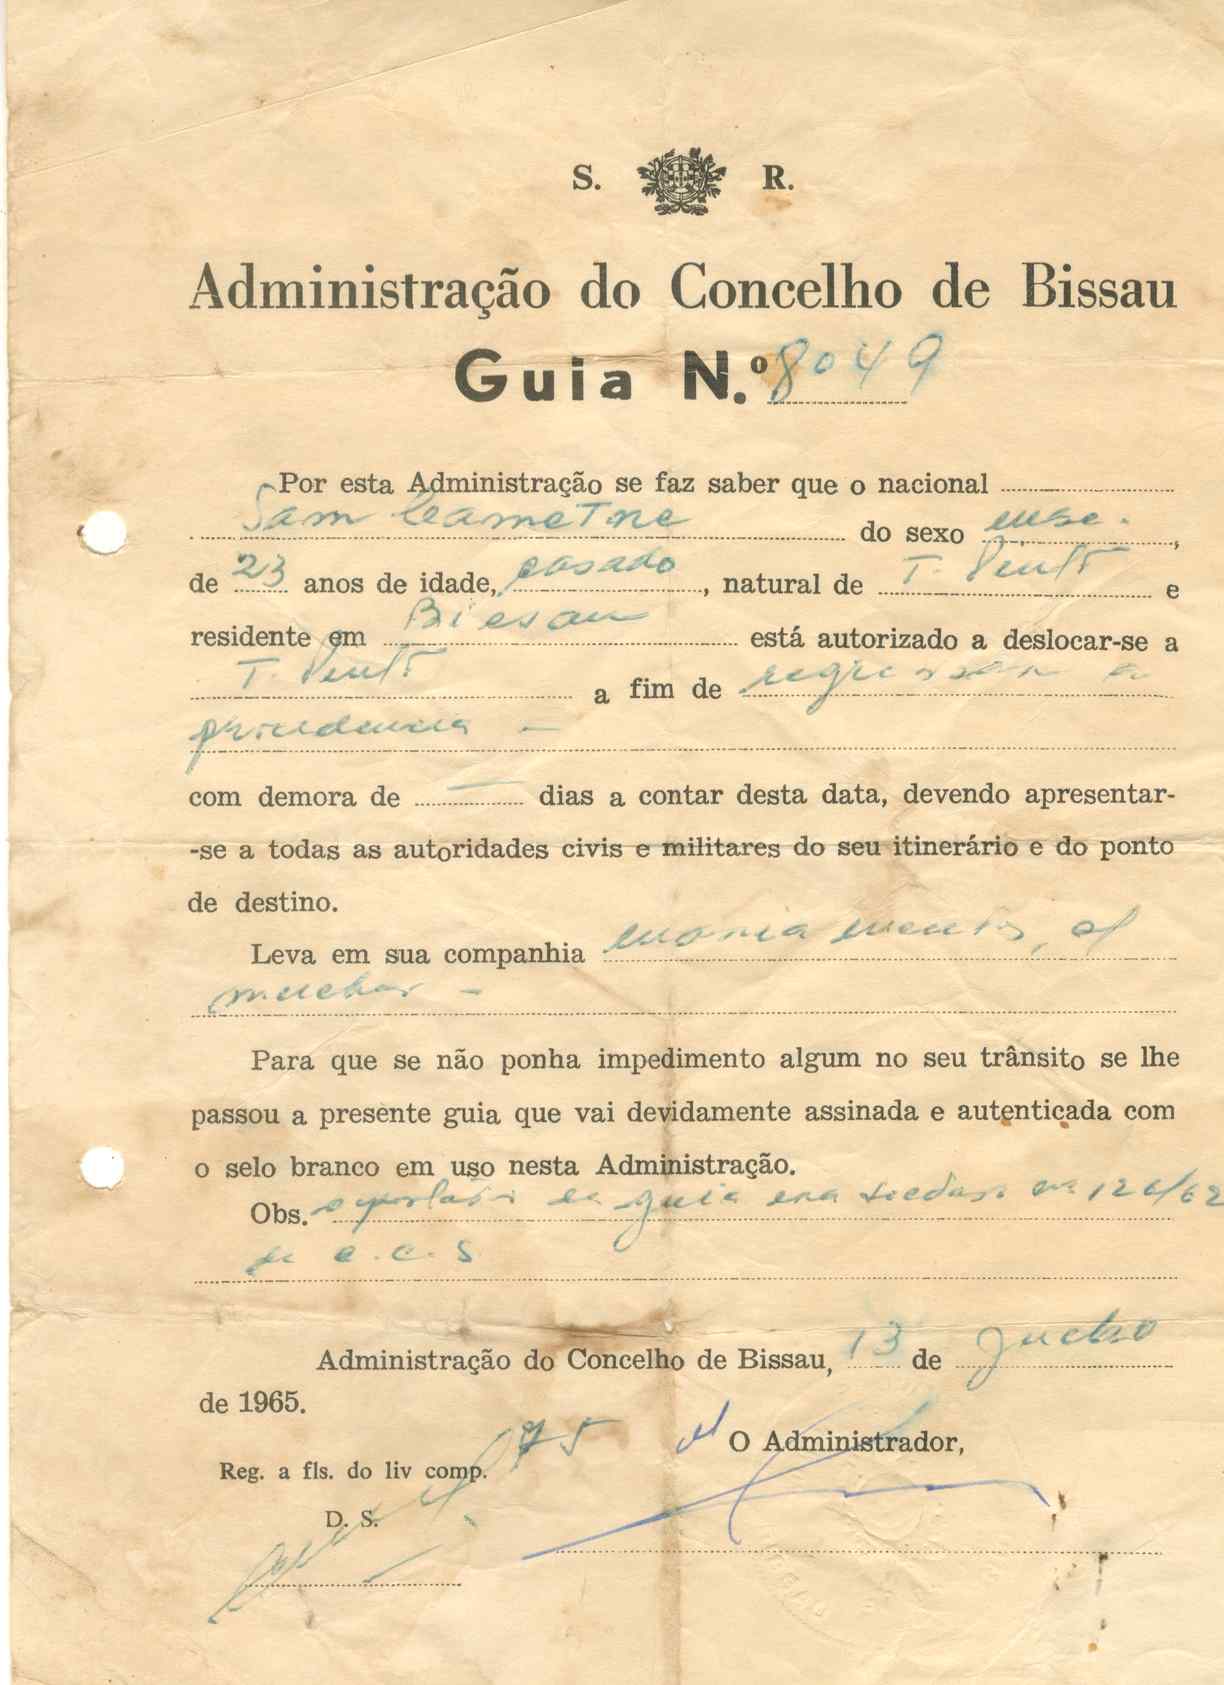 S. R.
Administração do Concelho de Bissau
Guia N.º 8049
Por esta Administração se faz saber que o nacional
Sam do sexo masc.,
de 23 anos de idade, casado, natural de T. Pinto e
residente em Bissau está autorizado a deslocar-se a
T. Pinto a fim de regressar a
com demora de — dias a contar desta data, devendo apresentar-
-se a todas as autoridades civis e militares do seu itinerário e do ponto
de destino.
Leva em sua companhia
mulher —
Para que se não ponha impedimento algum no seu trânsito se lhe
passou a presente guia que vai devidamente assinada e autenticada com
o selo branco em uso nesta Administração.
Obs. o portador guia
Administração do Concelho de Bissau, 13 de
de 1965.
O Administrador,
Reg. a fls. 75 do liv comp.
D. S.